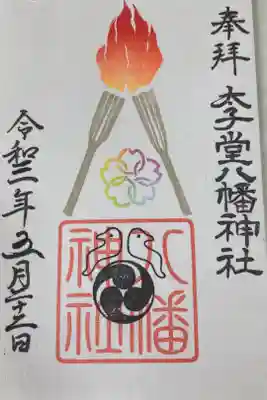 奉拝 太子堂八幡神社
八幡
神社
令和三年五月二十三日